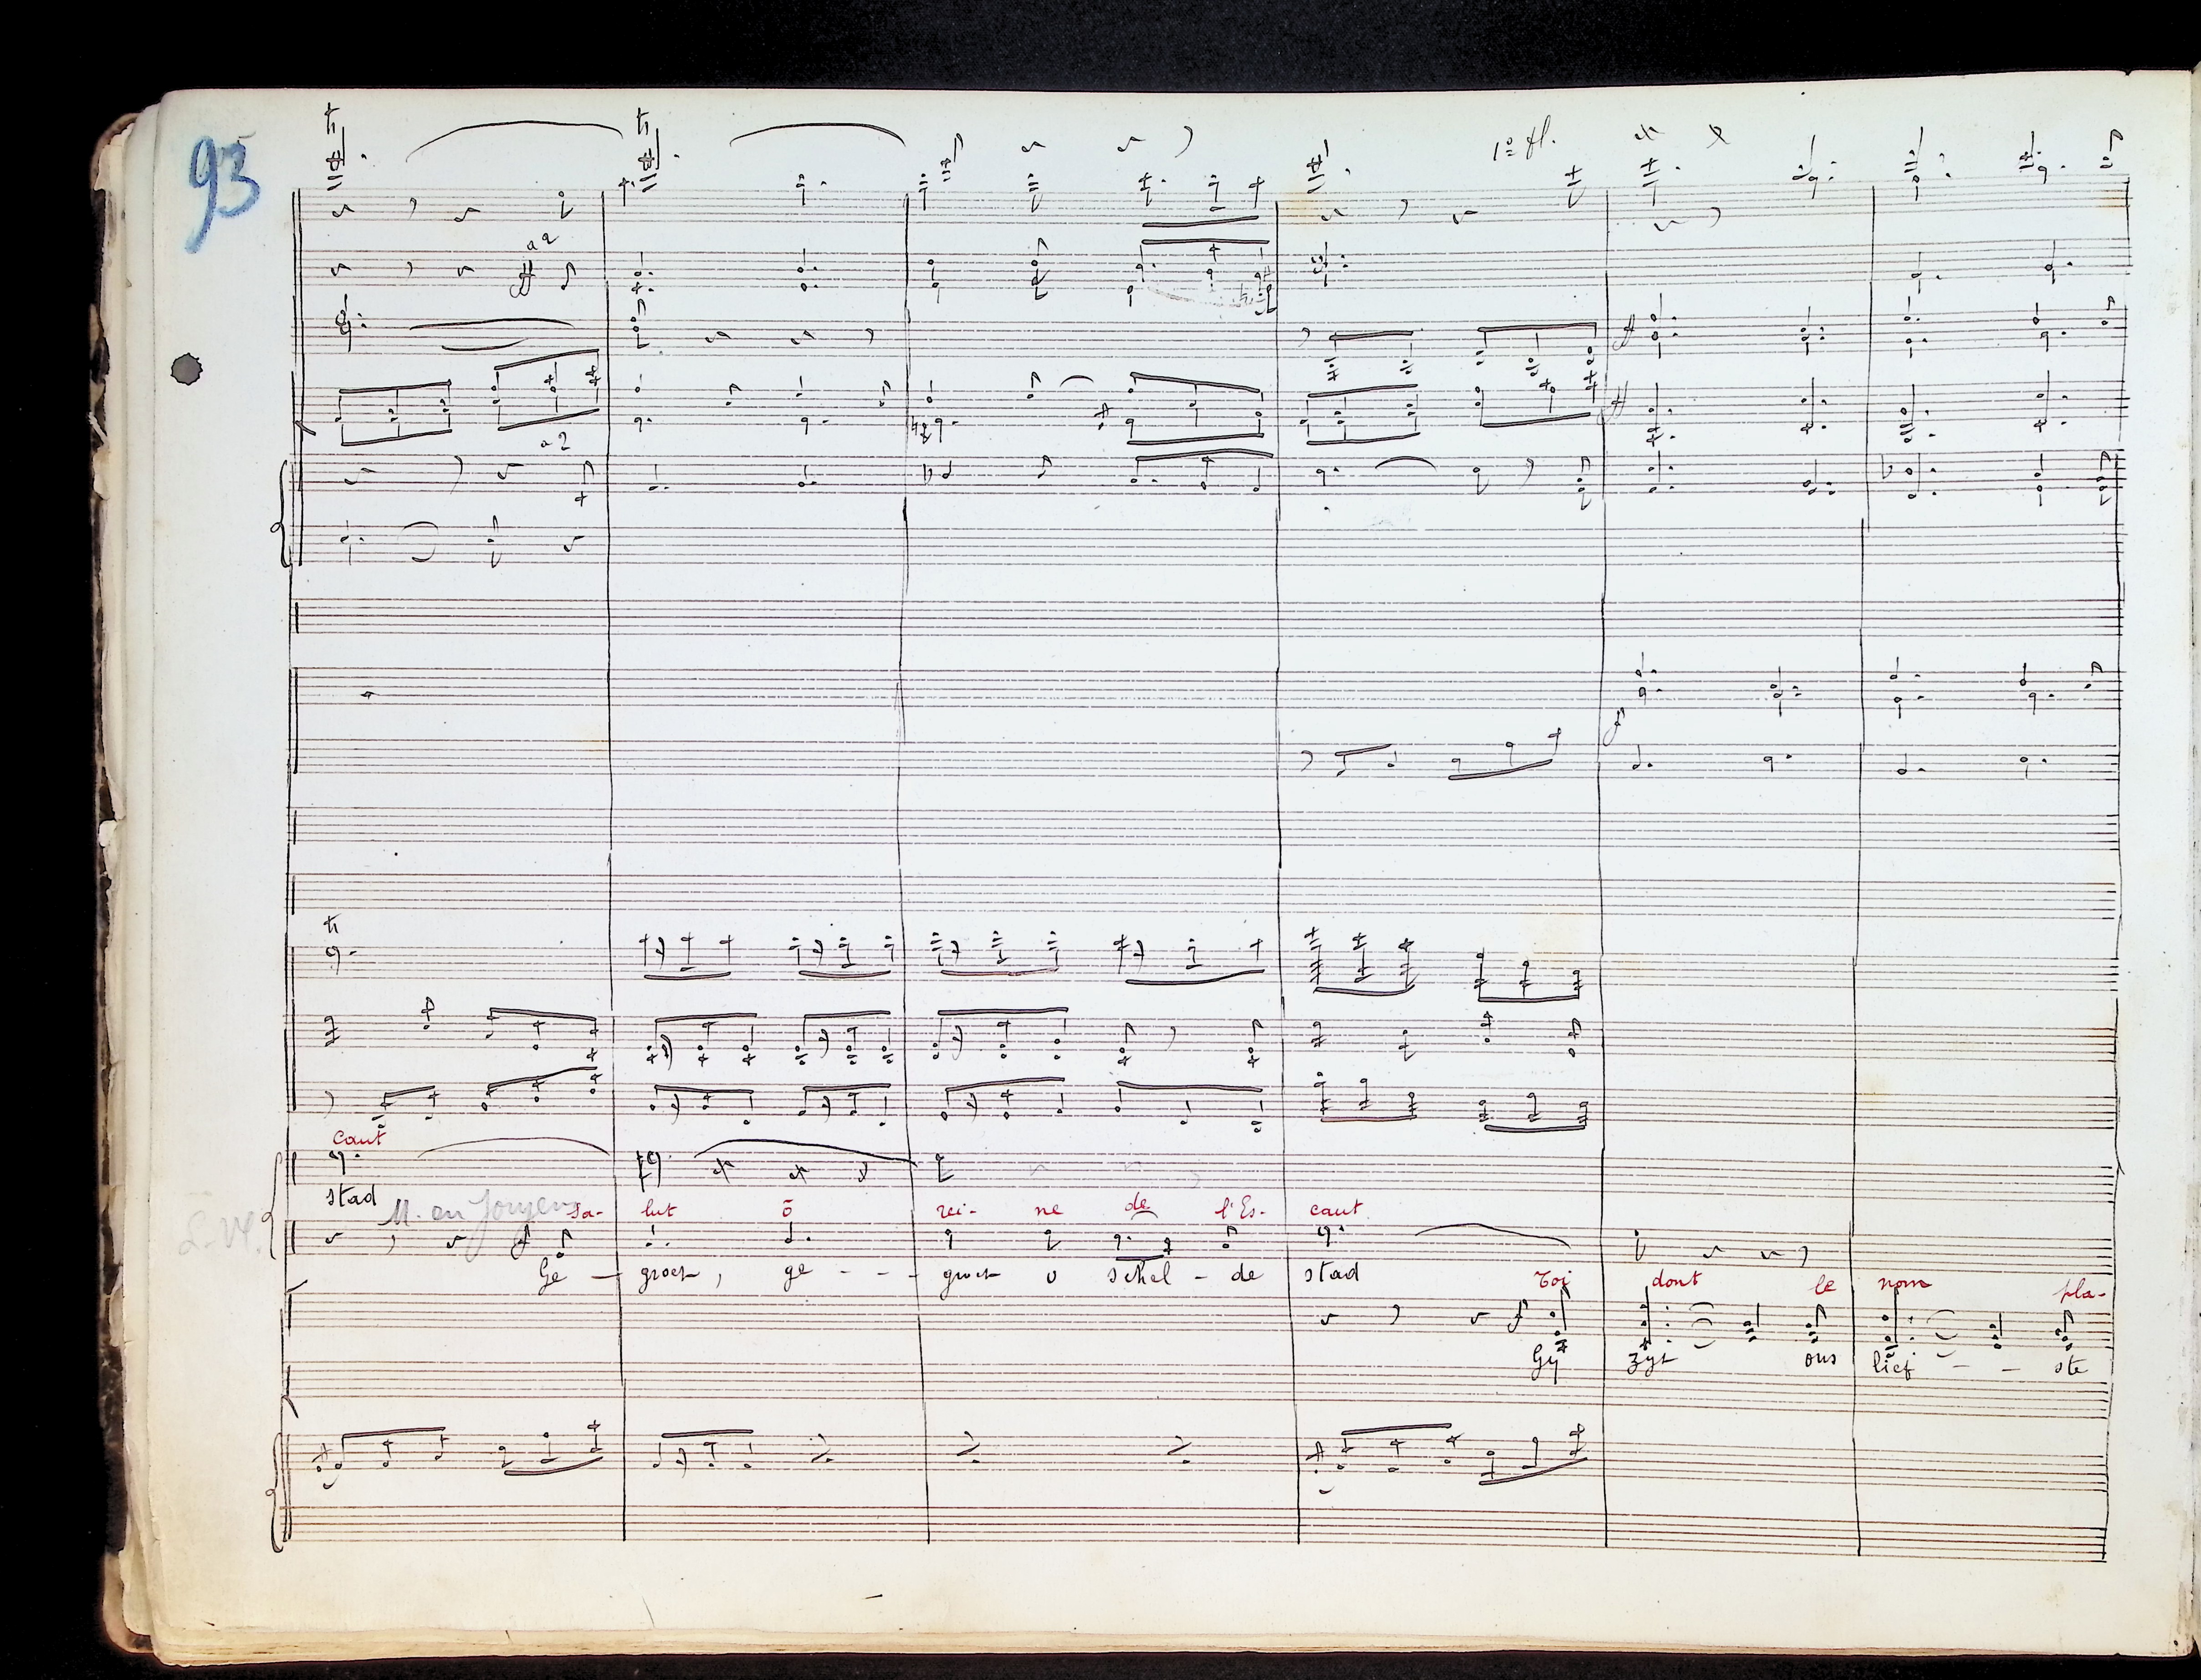 93
1º fl.
a 2
ff
ff
a 2
f
caut
stad
M. en Jongens
sa- lut ô rei- ne de l'Es- caut
Ge - groet, ge - - - groet o schel - de stad
Toi dont le nom pla-
Gy zyt ons lief - - ste